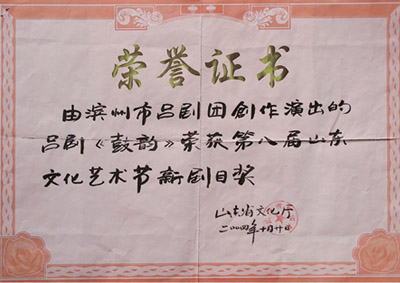 荣誉证书
由滨州市吕剧团創作演出的
吕剧《鼓韵》荣获第八届山东
文化艺术节新剧目奖
山东省文化厅
二〇〇四年十月廿日